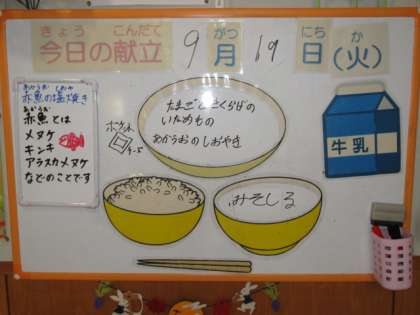 きょう こんだて
今日の献立
がつ にち か
9月19日(火)
あかうお しおや
赤魚の塩焼き
あかうお
赤魚とは
メヌケ
キンキ
アラスカメヌケ
などのことです
いためもの
あかうおのしおやき
みそしる
牛乳